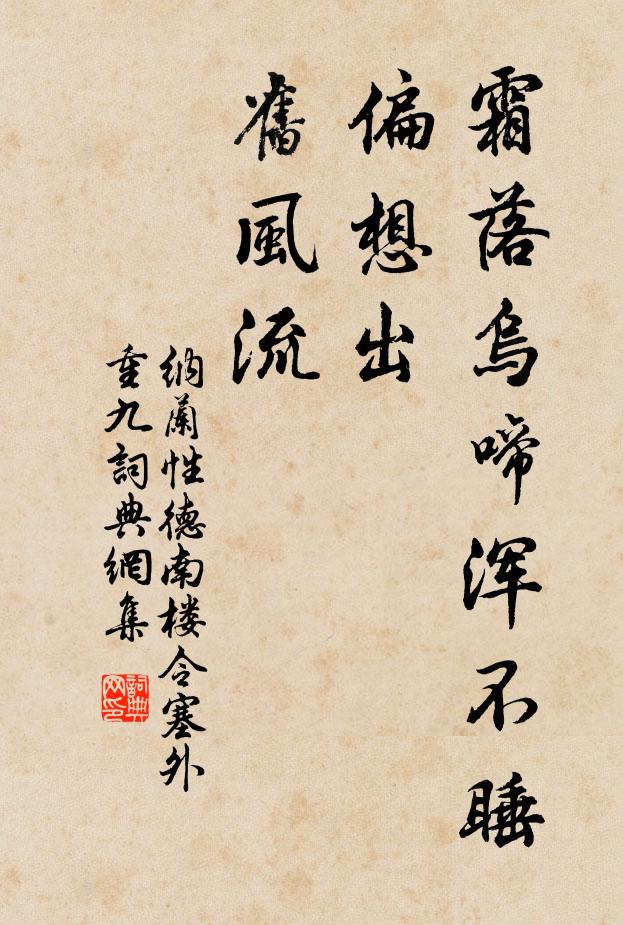 霜落烏啼浑不睡
偏想出
舊風流
纳蘭性德南楼令塞外
重九詞典網集
詞典
网印